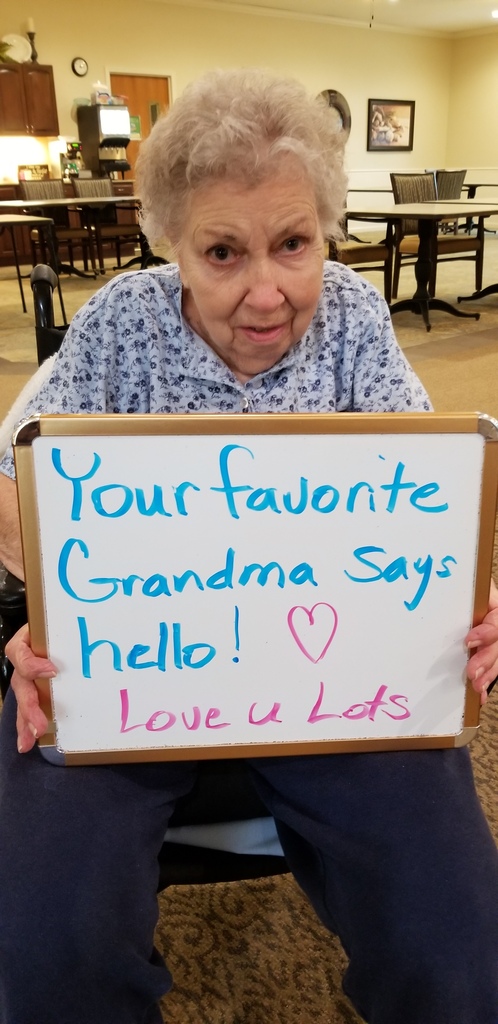 Your favorite
Grandma says
hello! ♡
Love u Lots